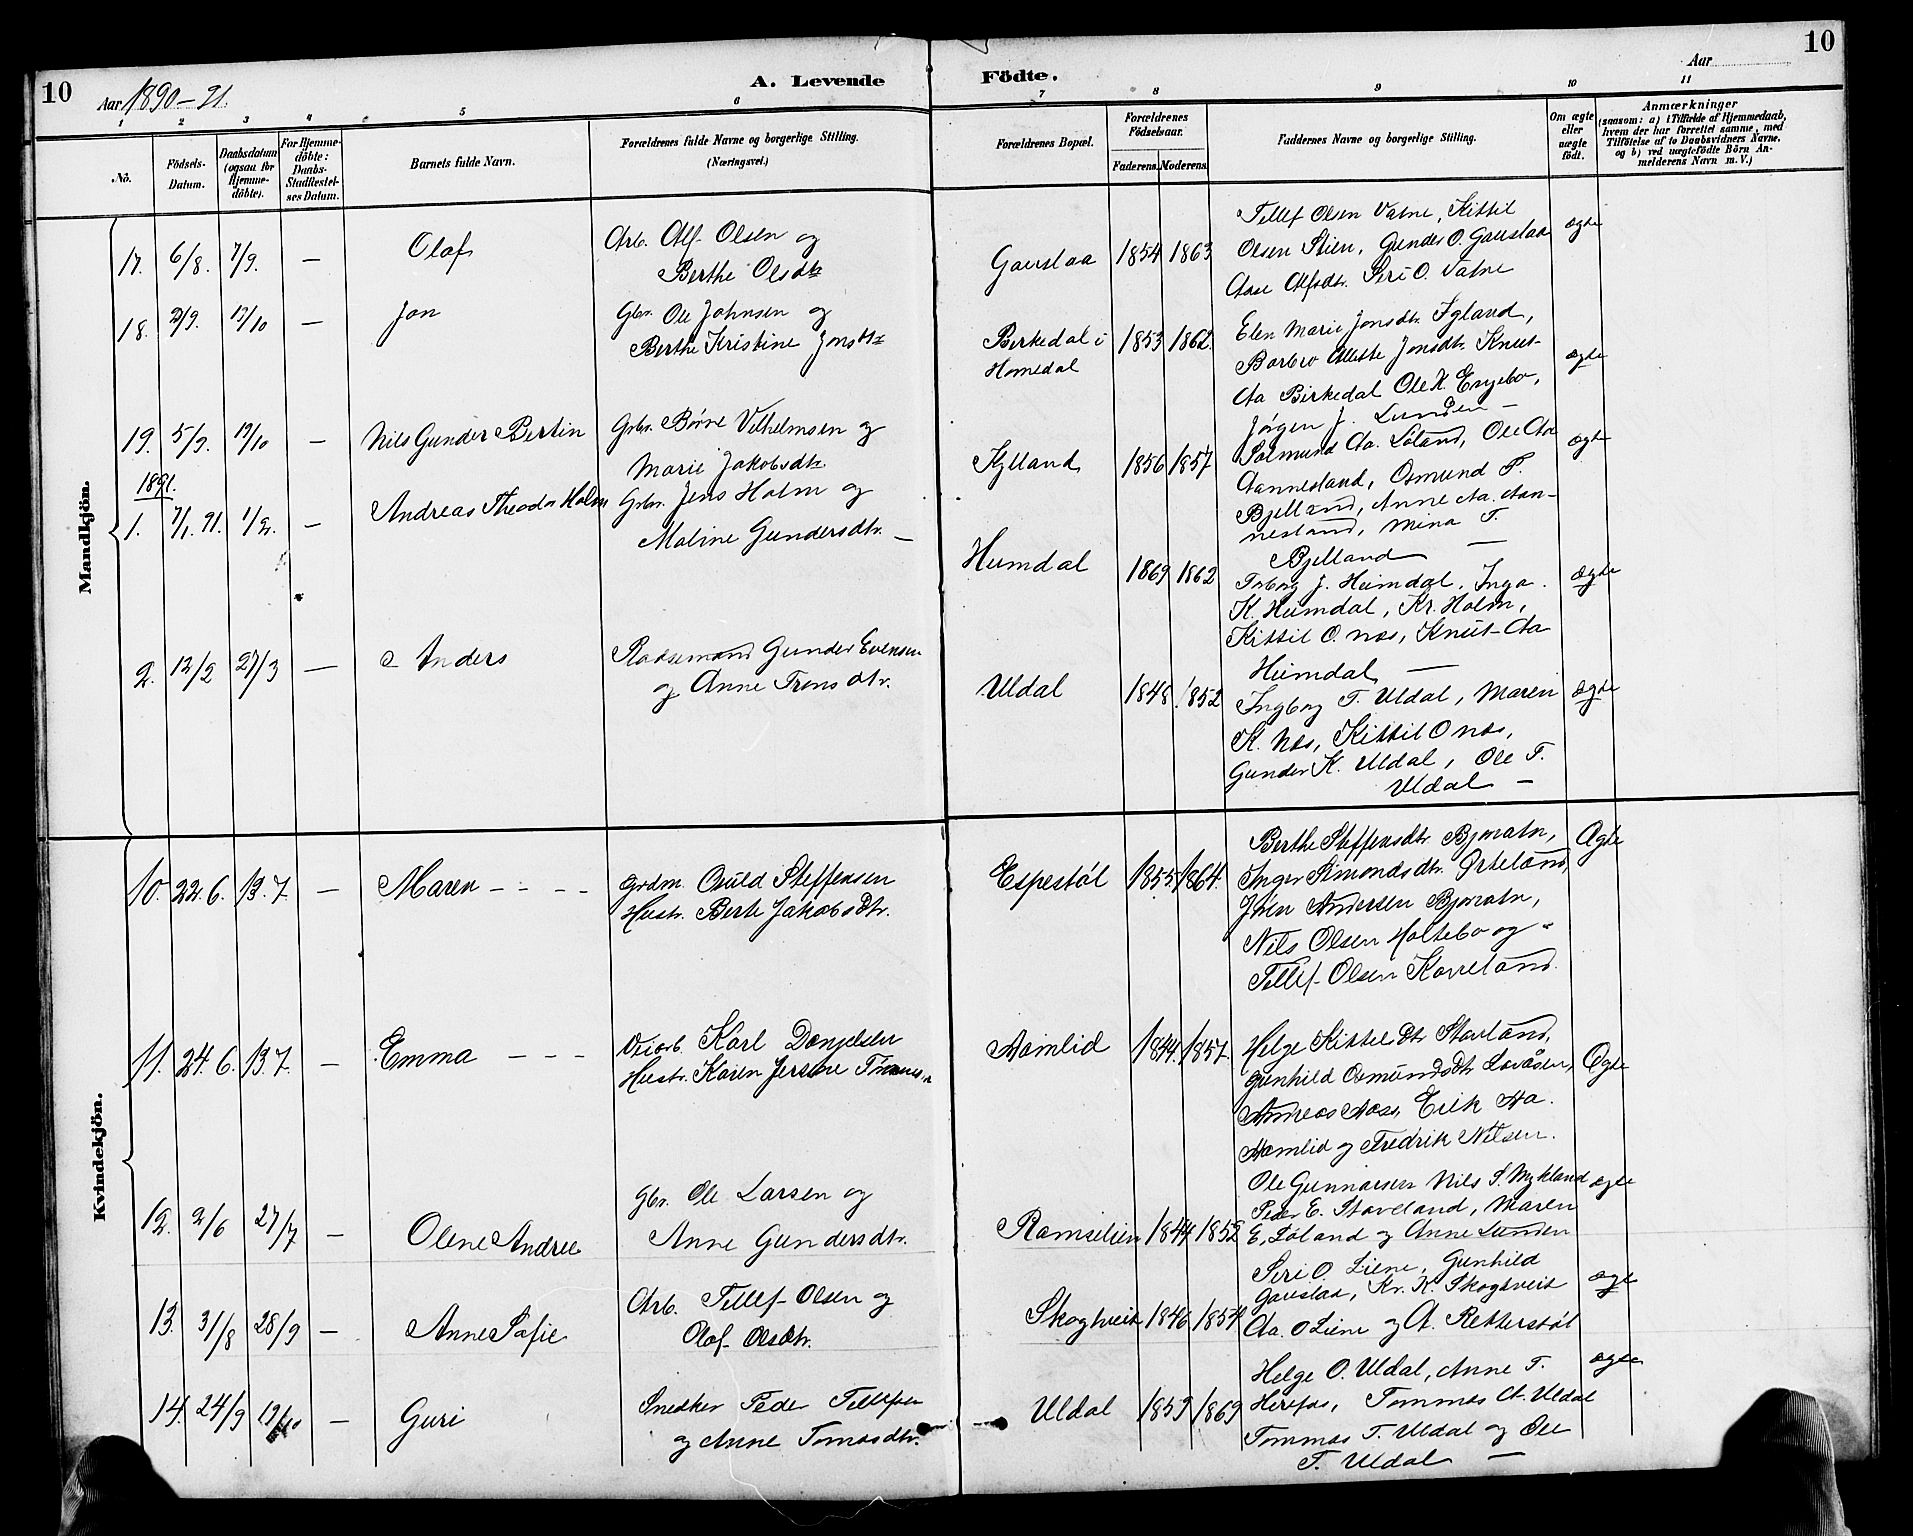 10
Aar 1890-91.
A. Levende
Födte.
Aar
10
1
2
3
4
5
6
7
8
9
10
11
No.
Födsels-
Datum.
Daabsdatum
(ogsaa for
Hjemme-
döbte).
For Hjemme-
döbte:
Daabs-
Stadfæstel-
ses Datum.
Barnets fulde Navn.
Forældrenes fulde Navne og borgerlige Stilling.
(Næringsvei.)
Forældrenes Bopæl.
Forældrenes
Födselsaar.
Faderens.
Moderens.
Faddernes Navne og borgerlige Stilling.
Om ægte
eller
uægte
født.
Anmærkninger
(saasom: a) i Tilfælde af Hjemmedaab,
hvem der har forrettet samme, med
Tilføielse af to Daabsvidners Navne,
og b) ved uægtefödte Börn An-
melderens Navn m. V.)
Mandkjön.
17. 6/8. 7/9. — Olaf
Arb. Alf Olsen og
Berthe Olsdtr
Gauslaa 1854 1863
Tellef Olsen Vatne, Kittil
Olsen Stien, Gunder O. Gauslaa
Aase Alfsdtr. Siri O. Vatne
ægte
18. 2/9. 12/10 — Jon
Gbr. Ole Johnsen og
Berthe Kristine Jonsdtr
Birkedal i
Homedal
1853 1862.
Elen Marie Jonsdtr. Igland,
Barbro Jonsdtr. Knut
Aa Birkedal Ole K. Engebo,
Jørgen J. Lunden —
ægte
19. 5/9. 12/10 — Nils Gunder Bertin
Gbr. Børre Vilhelmsen og
Marie Jakobsdtr.
Kylland 1856 1857
Salmund Aa. Løland, Ole Aa
Aannesland, Osmund T.
Bjelland, Anne Aa. Aan-
nesland, Mina T.
Bjelland —
ægte
1891.
1. 7/1. 91. 1/2. — Andreas Theodor Holm
Gbr. Jens Holm og
Maline Gundersdtr. —
Heimdal 1869 1862
Torborg J. Heimdal, Inga
K. Heimdal, Kr. Holm,
Kittil O. Næs, Knut Aa
Heimdal —
ægte
2. 12/2 27/3 — Anders
Gunder Evensen
og Anne Tronsdtr.
Uldal 1848 1852
Ingborg T. Uldal, Maren
K. Næs, Kittil O Næs,
Gunder K. Uldal, Ole T.
Uldal —
ægte
Kvindekjön.
10. 22. 6. 13. 7. — Maren - - -
Grdm. Osuld Steffensen
Hustr. Berte Jakobsdtr.
Espestøl 1855 1864.
Berthe Steffensdtr. Bjorvatn,
Inger Simonsdtr. Ørteland,
Jhen Andersen Bjorvatn,
Nils Olsen Holtebo og
Tellef Olsen Kaveland.
Ægte
11. 24. 6. 13. 7. — Emma - - -
Veiarb. Karl Danjelsen
Hustr. Karen
Aamlid 1844. 1857.
Helge Kittelsdtr Stavland,
Gunhild Osmundsdtr Lavåsen,
Andreas Aass, Erik Aa.
Aamlid og Fredrik Nilsen.
Ægte
12. 2/6 27/7 — Olene Andree
Gbr. Ole Larsen og
Anne Gundersdtr.
Ramselien 1844 1852
Ole Gunnarsen Nils S. Mykland
Peder E. Staveland, Maren
E. Løland og Anne Lunden
ægte
13. 31/8 28/9 — Anne Sofie
Arb. Tellef Olsen og
Olsdtr.
Skogtveit 1846 1854
Siri O. Liene, Gunhild
Gauslaa, Kr. K. Skogtveit
Aa. O Liene og A. Retterstøl
ægte
14. 24/9 19/10 — Guri
Snedker Peder Tellefsen
og Anne Tomasdtr.
Uldal 1859 1869
Helge O. Uldal, Anne T.
Herefos, Tommas A. Uldal
Tommas T. Uldal og Ole
T. Uldal —
ægte